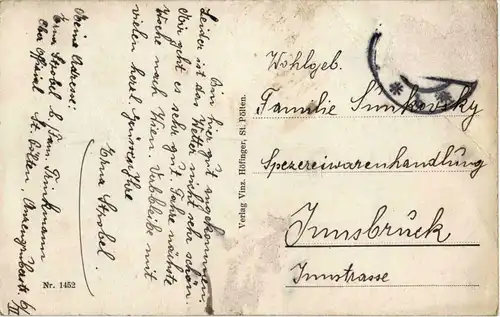 Bin hier gut angekommen,
Leider ist das Wetter nicht sehr schön.
Mir geht es sehr gut. Fahre nächste
Woche nach Wien. Verbleibe mit
vielen herzl. Grüssen Ihre
Erna Strobel.
Meine Adresse:
Erna Strobel b. Fam. Funkmann
St. Pölten,
Nr. 1452
Verlag Vinz. Höfinger, St. Pölten.
Wohlgeb.
Familie Sunkovsky
Spezereiwarenhandlung
Innsbrück
Innstrasse